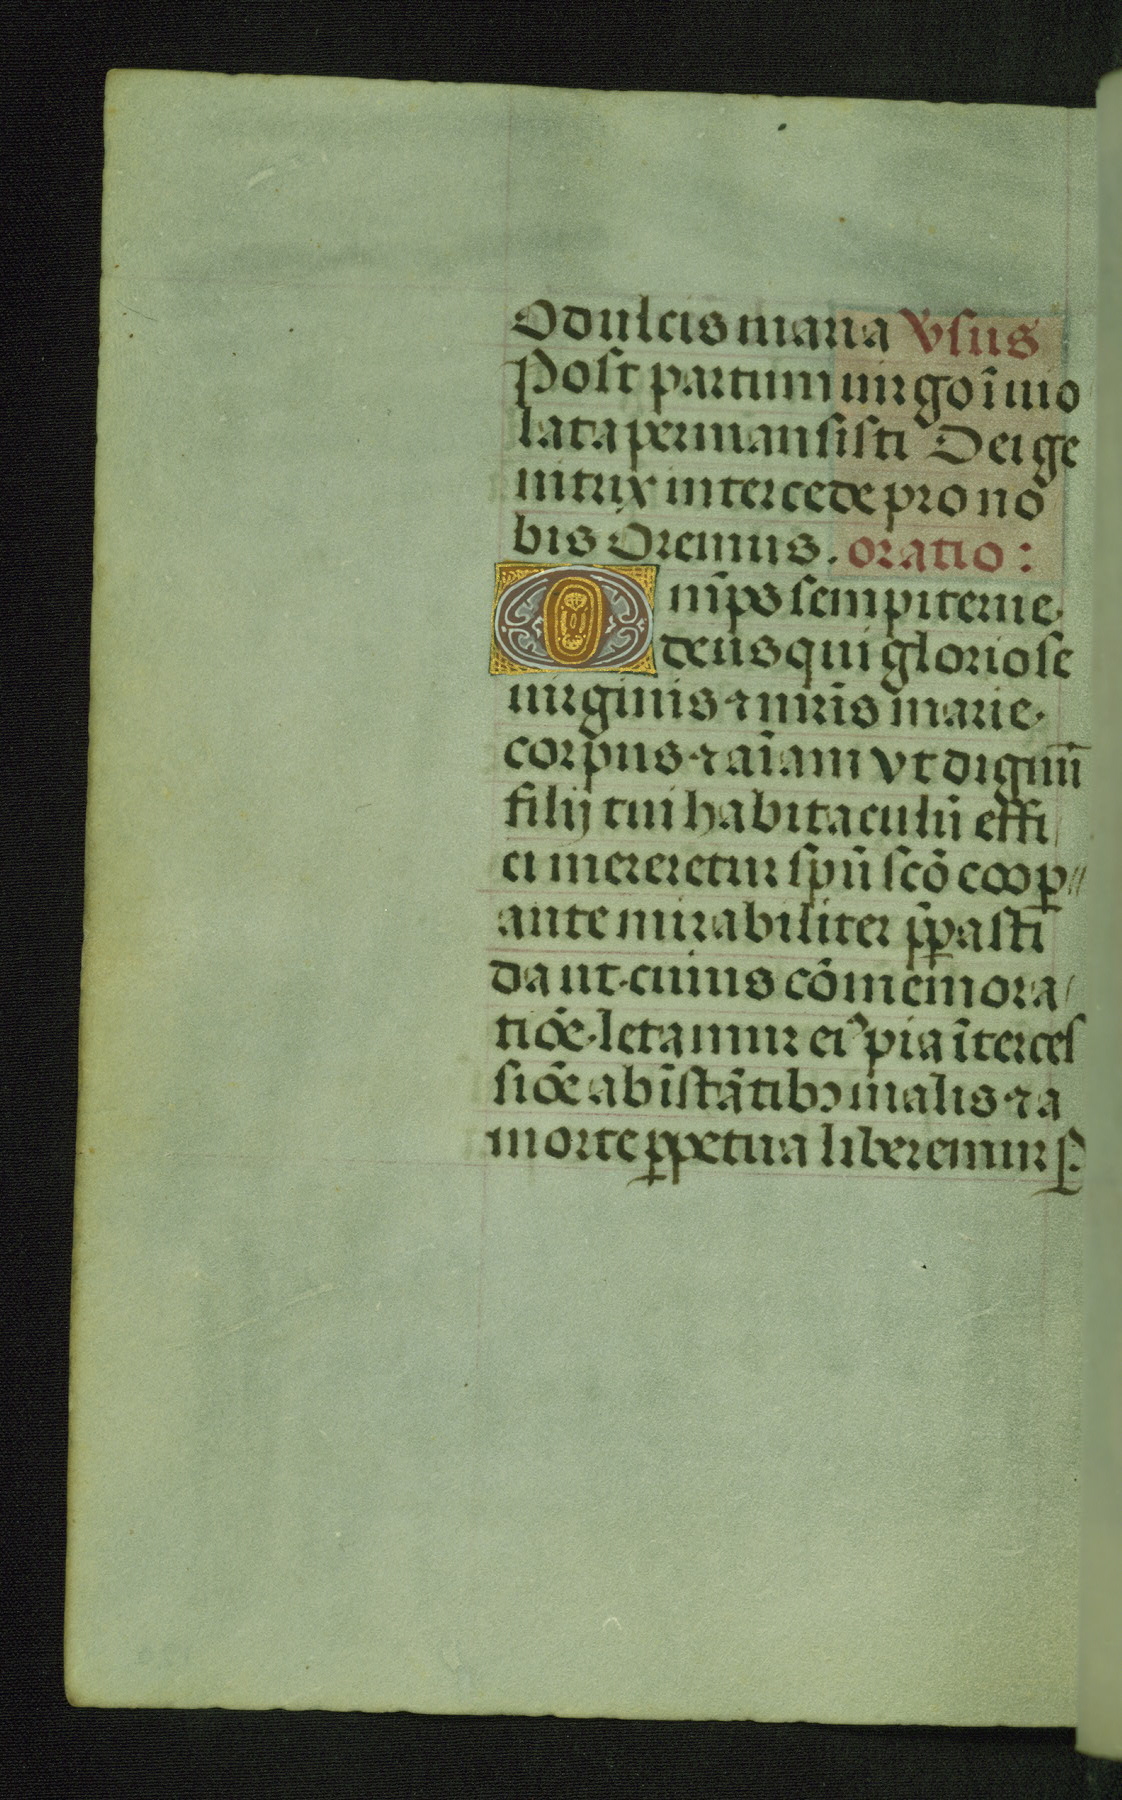 O dulcis maria v̾sus
Post partum uirgo īuio
lata permansisti Dei ge
nitrix intercede pro no
bis Oremus. oratio:
Om̄ps sempiterne
deus qui gloriose
uirginis ⁊ mr̄is marie.
corpus ⁊ aīam vt dignū
filij tui habitaculū effi
ci mereretur sp̄ū scō coop̲
ante mirabiliter p̄p̲asti
da ut cuius cōmemora
tiōe letamur eiꝰ pia īterces
siōe ab īstātibꝫ malis ⁊ a
morte p̲petua liberemur P̲